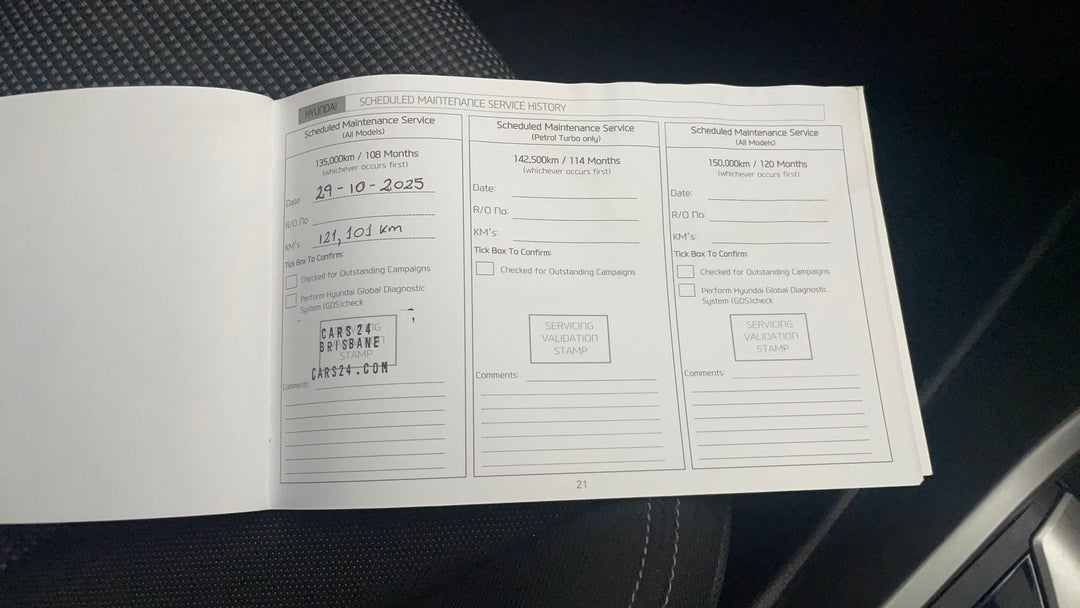 HYUNDAI SCHEDULED MAINTENANCE SERVICE HISTORY
Scheduled Maintenance Service
(All Models)
135,000km / 108 Months
(whichever occurs first)
Date: 29-10-2025
R/O No:
KM's: 121,101 km
Tick Box To Confirm:
Checked for Outstanding Campaigns
Perform Hyundai Global Diagnostic
System (GDS)check
CARS24
BRISBANE
STAMP
CARS24.COM
Comments:
Scheduled Maintenance Service
(Petrol Turbo only)
142,500km / 114 Months
(whichever occurs first)
Date:
R/O No:
KM's:
Tick Box To Confirm:
Checked for Outstanding Campaigns
SERVICING
VALIDATION
STAMP
Comments:
Scheduled Maintenance Service
(All Models)
150,000km / 120 Months
(whichever occurs first)
Date:
R/O No:
KM's:
Tick Box To Confirm:
Checked for Outstanding Campaigns
Perform Hyundai Global Diagnostic
System (GDS)check
SERVICING
VALIDATION
STAMP
Comments:
21